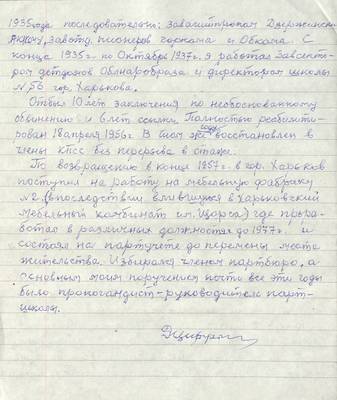 1935 года последовательно: завагитпропом Дзержинск.
ЛКСМУ, завотд. пионеров горкома и Обкома. С
конца 1935 г. по Октябрь 1937 г. я работал Завсекто-
ром детдомов Облнаробраза и директором школы
№ 56 гор. Харькова.
Отбыл 10 лет заключения по необоснованному
обвинению и 6 лет ссылки. Полностью реабилити-
рован 18 апреля 1956 г. В том же году восстановлен в
члены КПСС без перерыва в стаже.
По возвращению в конце 1957 г. в гор. Харьков
поступил на работу на мебельную фабрику
№ 2 (впоследствии влившуюся в Харьковский
Мебельный комбинат им. Щорса) где прора-
ботал в различных должностях до 1977 г. и
состоял на партучете до перемены места
жительства. Избирался членом партбюро, а
основным моим поручением почти все эти годы
было пропогандист-руководитель парт-
школы.